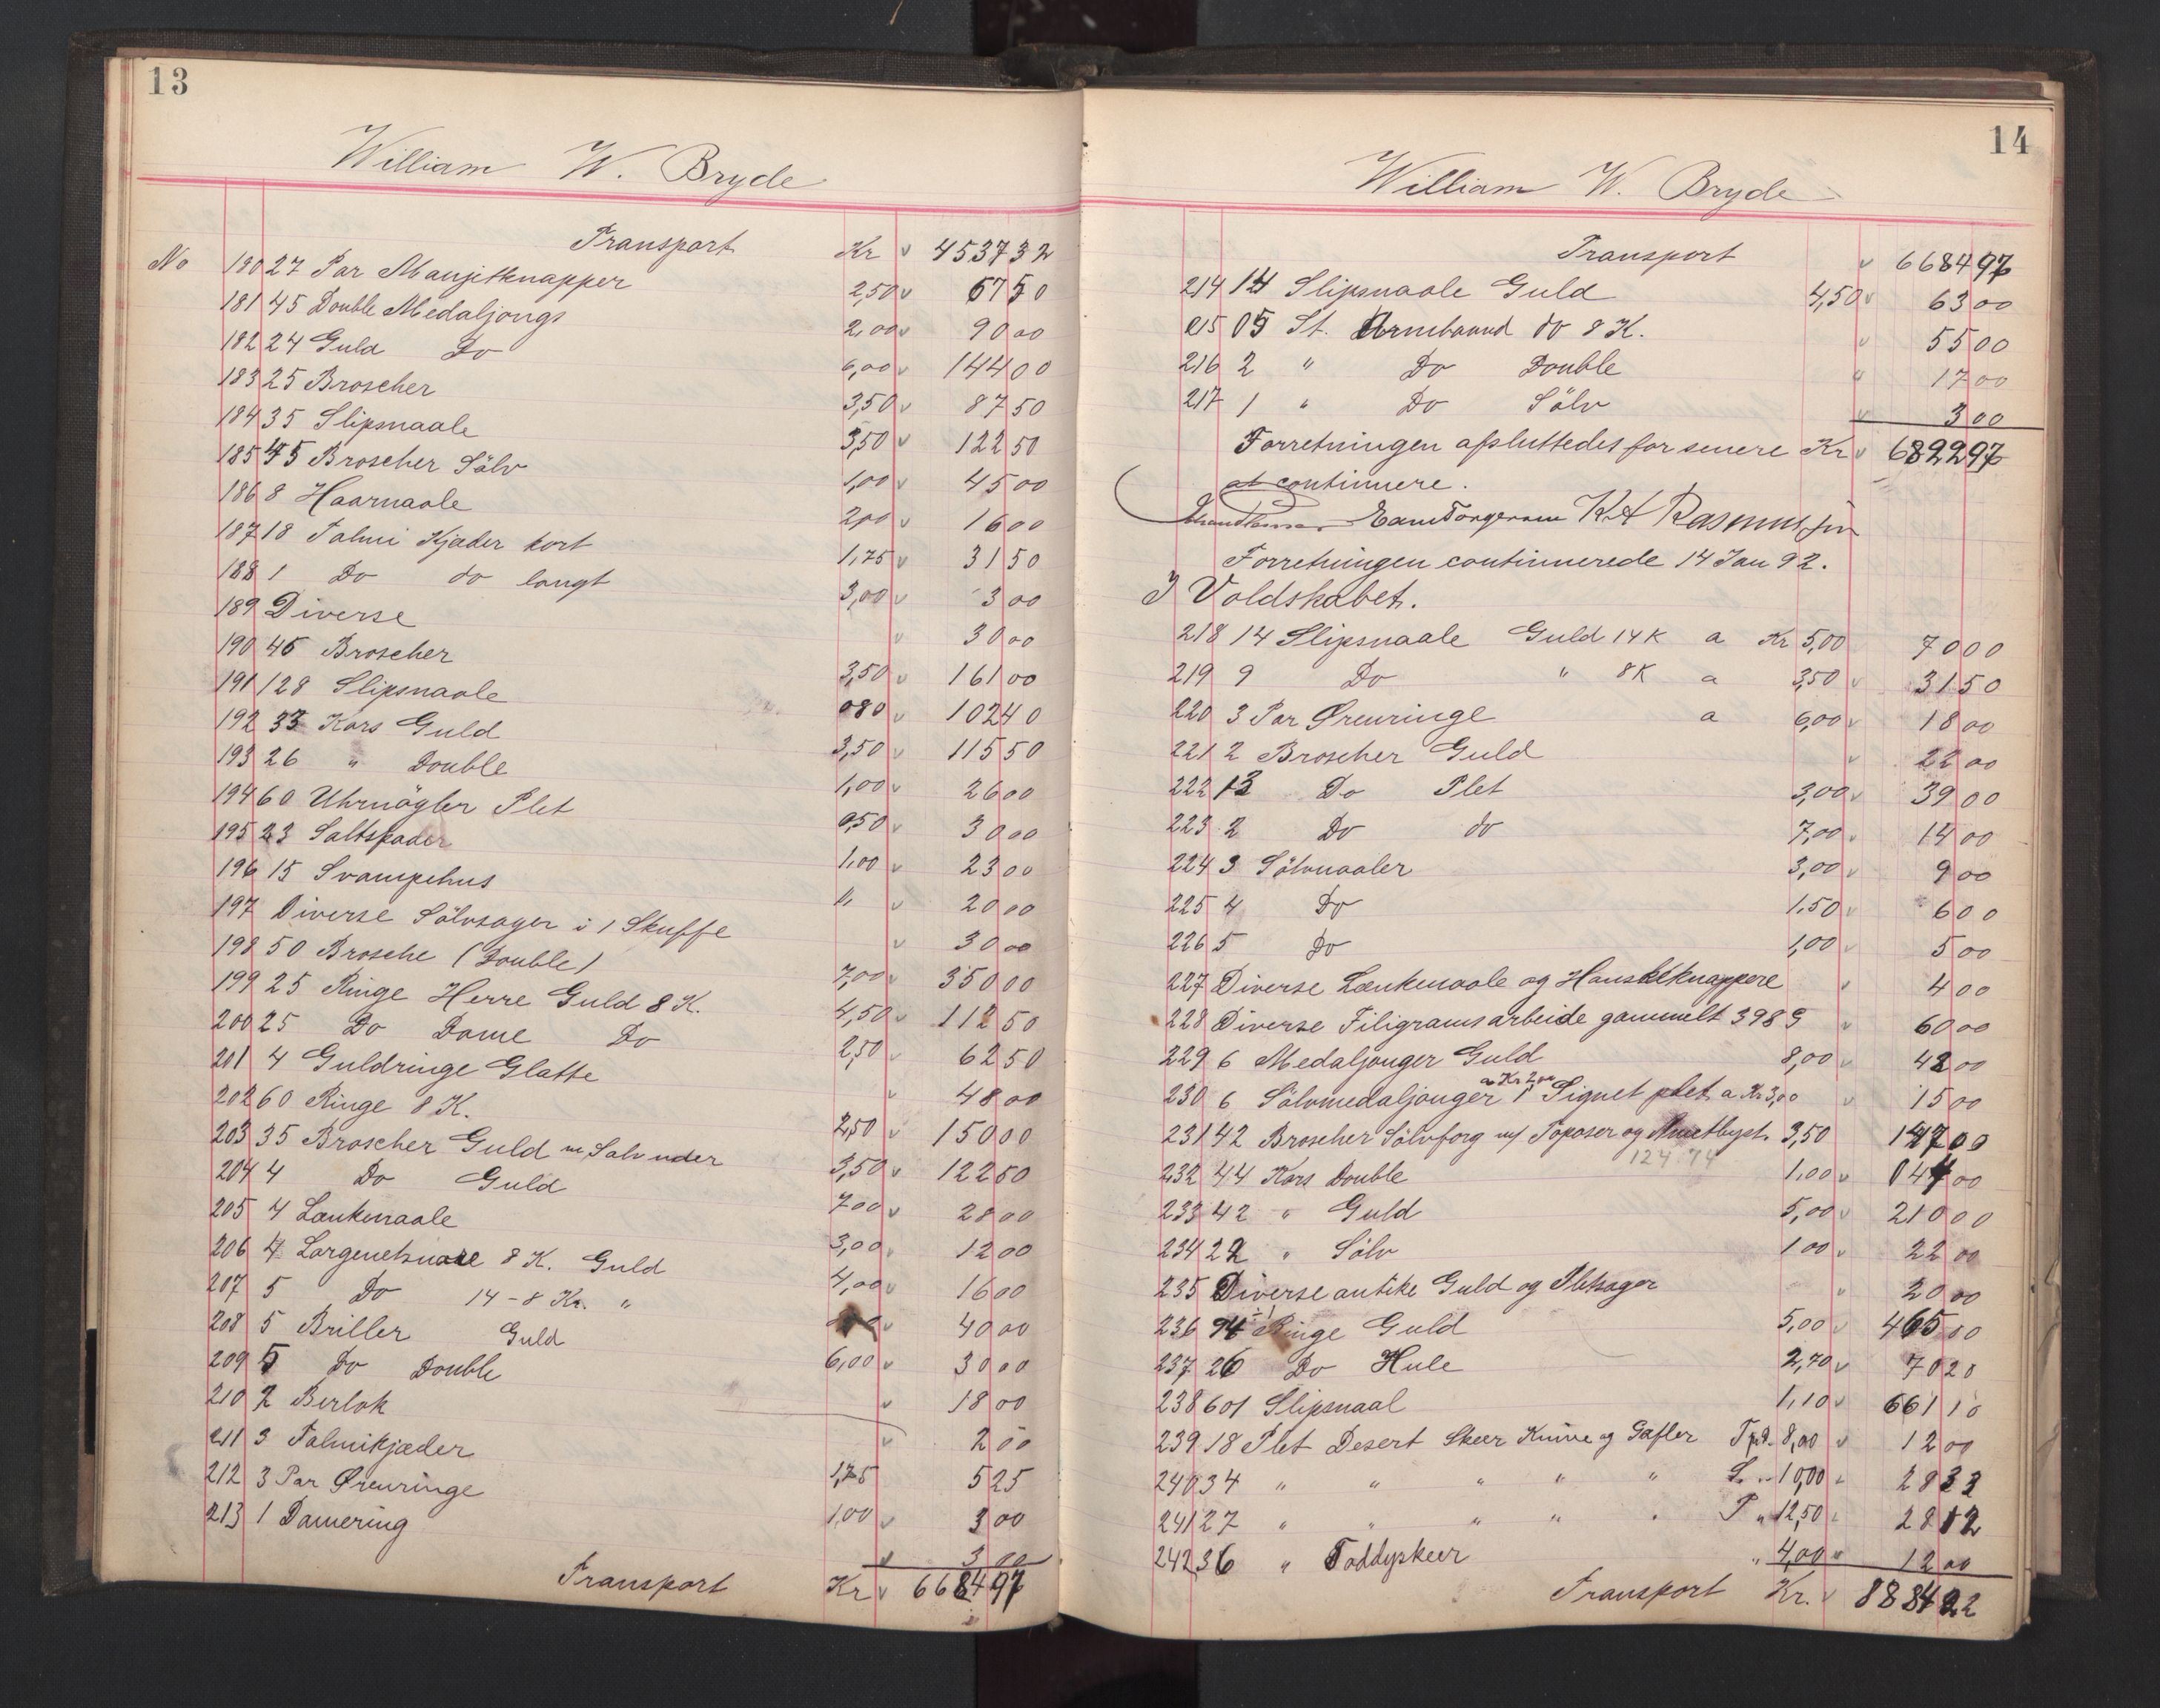 13
William W. Bryde
Transport Kr 4537 32
No 180 27 Par Manjetknapper 2,50 67 50
181 45 Double Medaljongs 2,00 90 00
182 24 Guld Do 6,00 144 00
183 25 Broscher 3,50 87 50
184 35 Slipsnaale 3,50 122 50
185 45 Broscher Sölv 1,00 45 00
186 8 Haarnaale 2,00 16 00
187 18 Talmi Kjæder kort 1,75 31 50
188 1 Do do langt 3,00 3 00
189 Diverse 30 00
190 46 Broscher 3,50 161 00
191 128 Slipsnaale 080 102 40
192 33 Kors Guld 3,50 115 50
193 26 " Double 1,00 26 00
194 60 Uhrnögler Plet 0,50 30 00
195 23 Saltspader 1,00 23 00
196 15 Svampehus " 20 00
197 Diverse Sölvsager i 1 Skuffe 30 00
198 50 Brosche (Double) 7,00 350 00
199 25 Ringe Herre Guld 8 K. 4,50 112 50
200 25 Do Dame Do 2,50 62 50
201 4 Guldringe Glatte 48 00
202 60 Ringe 8 K. 2,50 150 00
203 35 Broscher Guld m Sölv under 3,50 122 50
204 4 Do Guld 7 00 28 00
205 4 Lænkenaale 3,00 12 00
206 4 Lorgnetsnore 8 K. Guld 4,00 16 00
207 5 Do 14-8 Kr. " 40 00
208 5 Briller Guld 6,00 30 00
209 5 Do Double 18 00
210 2 Berlok 2 00
211 3 Talmikjæder 1,75 5 25
212 3 Par Ørenringe 1,00 3 00
213 1 Damering 3 00
Transport Kr 6684 97
14
William W. Bryde
Transport 6684 97
214 14 Slipsnaale Guld 4,50 63 00
215 05 St. Armbaand do 8 K. 55 00
216 2 " Do Double 17 00
217 1 " Do Sölv 3 00
Forretningen afsluttedes for senere Kr 6822 97
at continuere.
K A Rasmussen
Forretningen continuerede 14 Jan 92.
I Voldskabet.
218 14 Slipsnaale Guld 14 K a Kr 5,00 70 00
219 9 Do " 8 K a 3,50 31 50
220 3 Par Ørenringe a 6,00 18 00
221 2 Broscher Guld 22 00
222 13 Do Plet 3,00 39 00
223 2 Do do 7,00 14 00
224 3 Sölvnaaler 3,00 9 00
225 4 Do 1,50 6 00
226 5 Do 1,00 5 00
227 Diverse Lænkenaale og Hanskeknappere 4 00
228 Diverse Filigramsarbeide gammelt 398 G 60 00
229 6 Medaljonger Guld 8,00 48 00
230 6 Sölvmedaljonger a Kr 2 00 1 Signet plet a Kr 3,00 15 00
231 42 Broscher Sölvforg m/ Topaser og Ametbyst. 3,50 147 00
124 74
232 44 Kors Double 1,00 044 00
233 42 " Guld 5,00 210 00
234 22 " Sölv 1 00 22 00
235 Diverse antike Guld og Pletsager 20 00
236 94 Ringe Guld 5,00 465 00
237 26 Do Hule 2,70 70 20
238 601 Slipsnaal 1,10 661 10
239 18 Plet Desert Skeer Knive og Gafler Tyd. 8,00 12 00
240 34 " " " " " L. " 10,00 28 33
241 27 " " " " " T " 12,50 28 12
242 36 " Toddyskeer " 4,00 12 00
Transport Kr. 8884 22